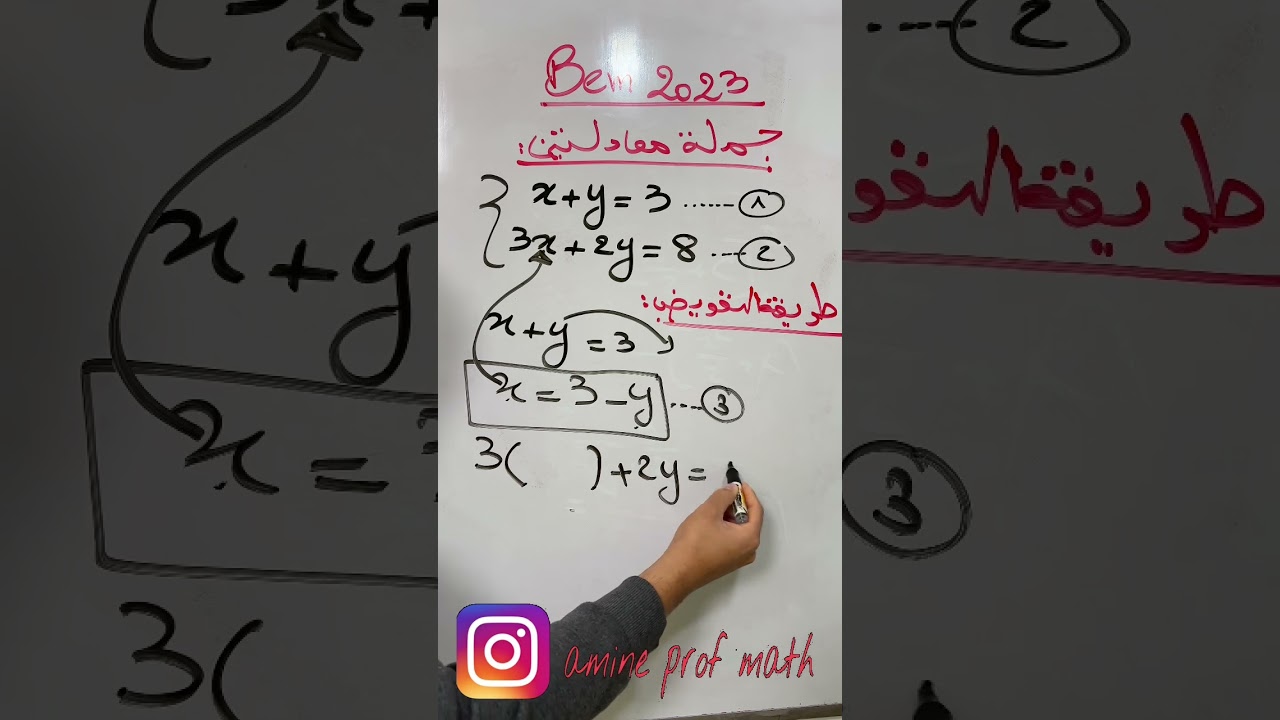 Bem 2023
جملة معادلتين:
x+y=3 ------ ①
3x+2y=8 ---- ②
طريقة التعويض:
x+y=3
x=3-y ---- ③
3( )+2y=
amine prof math